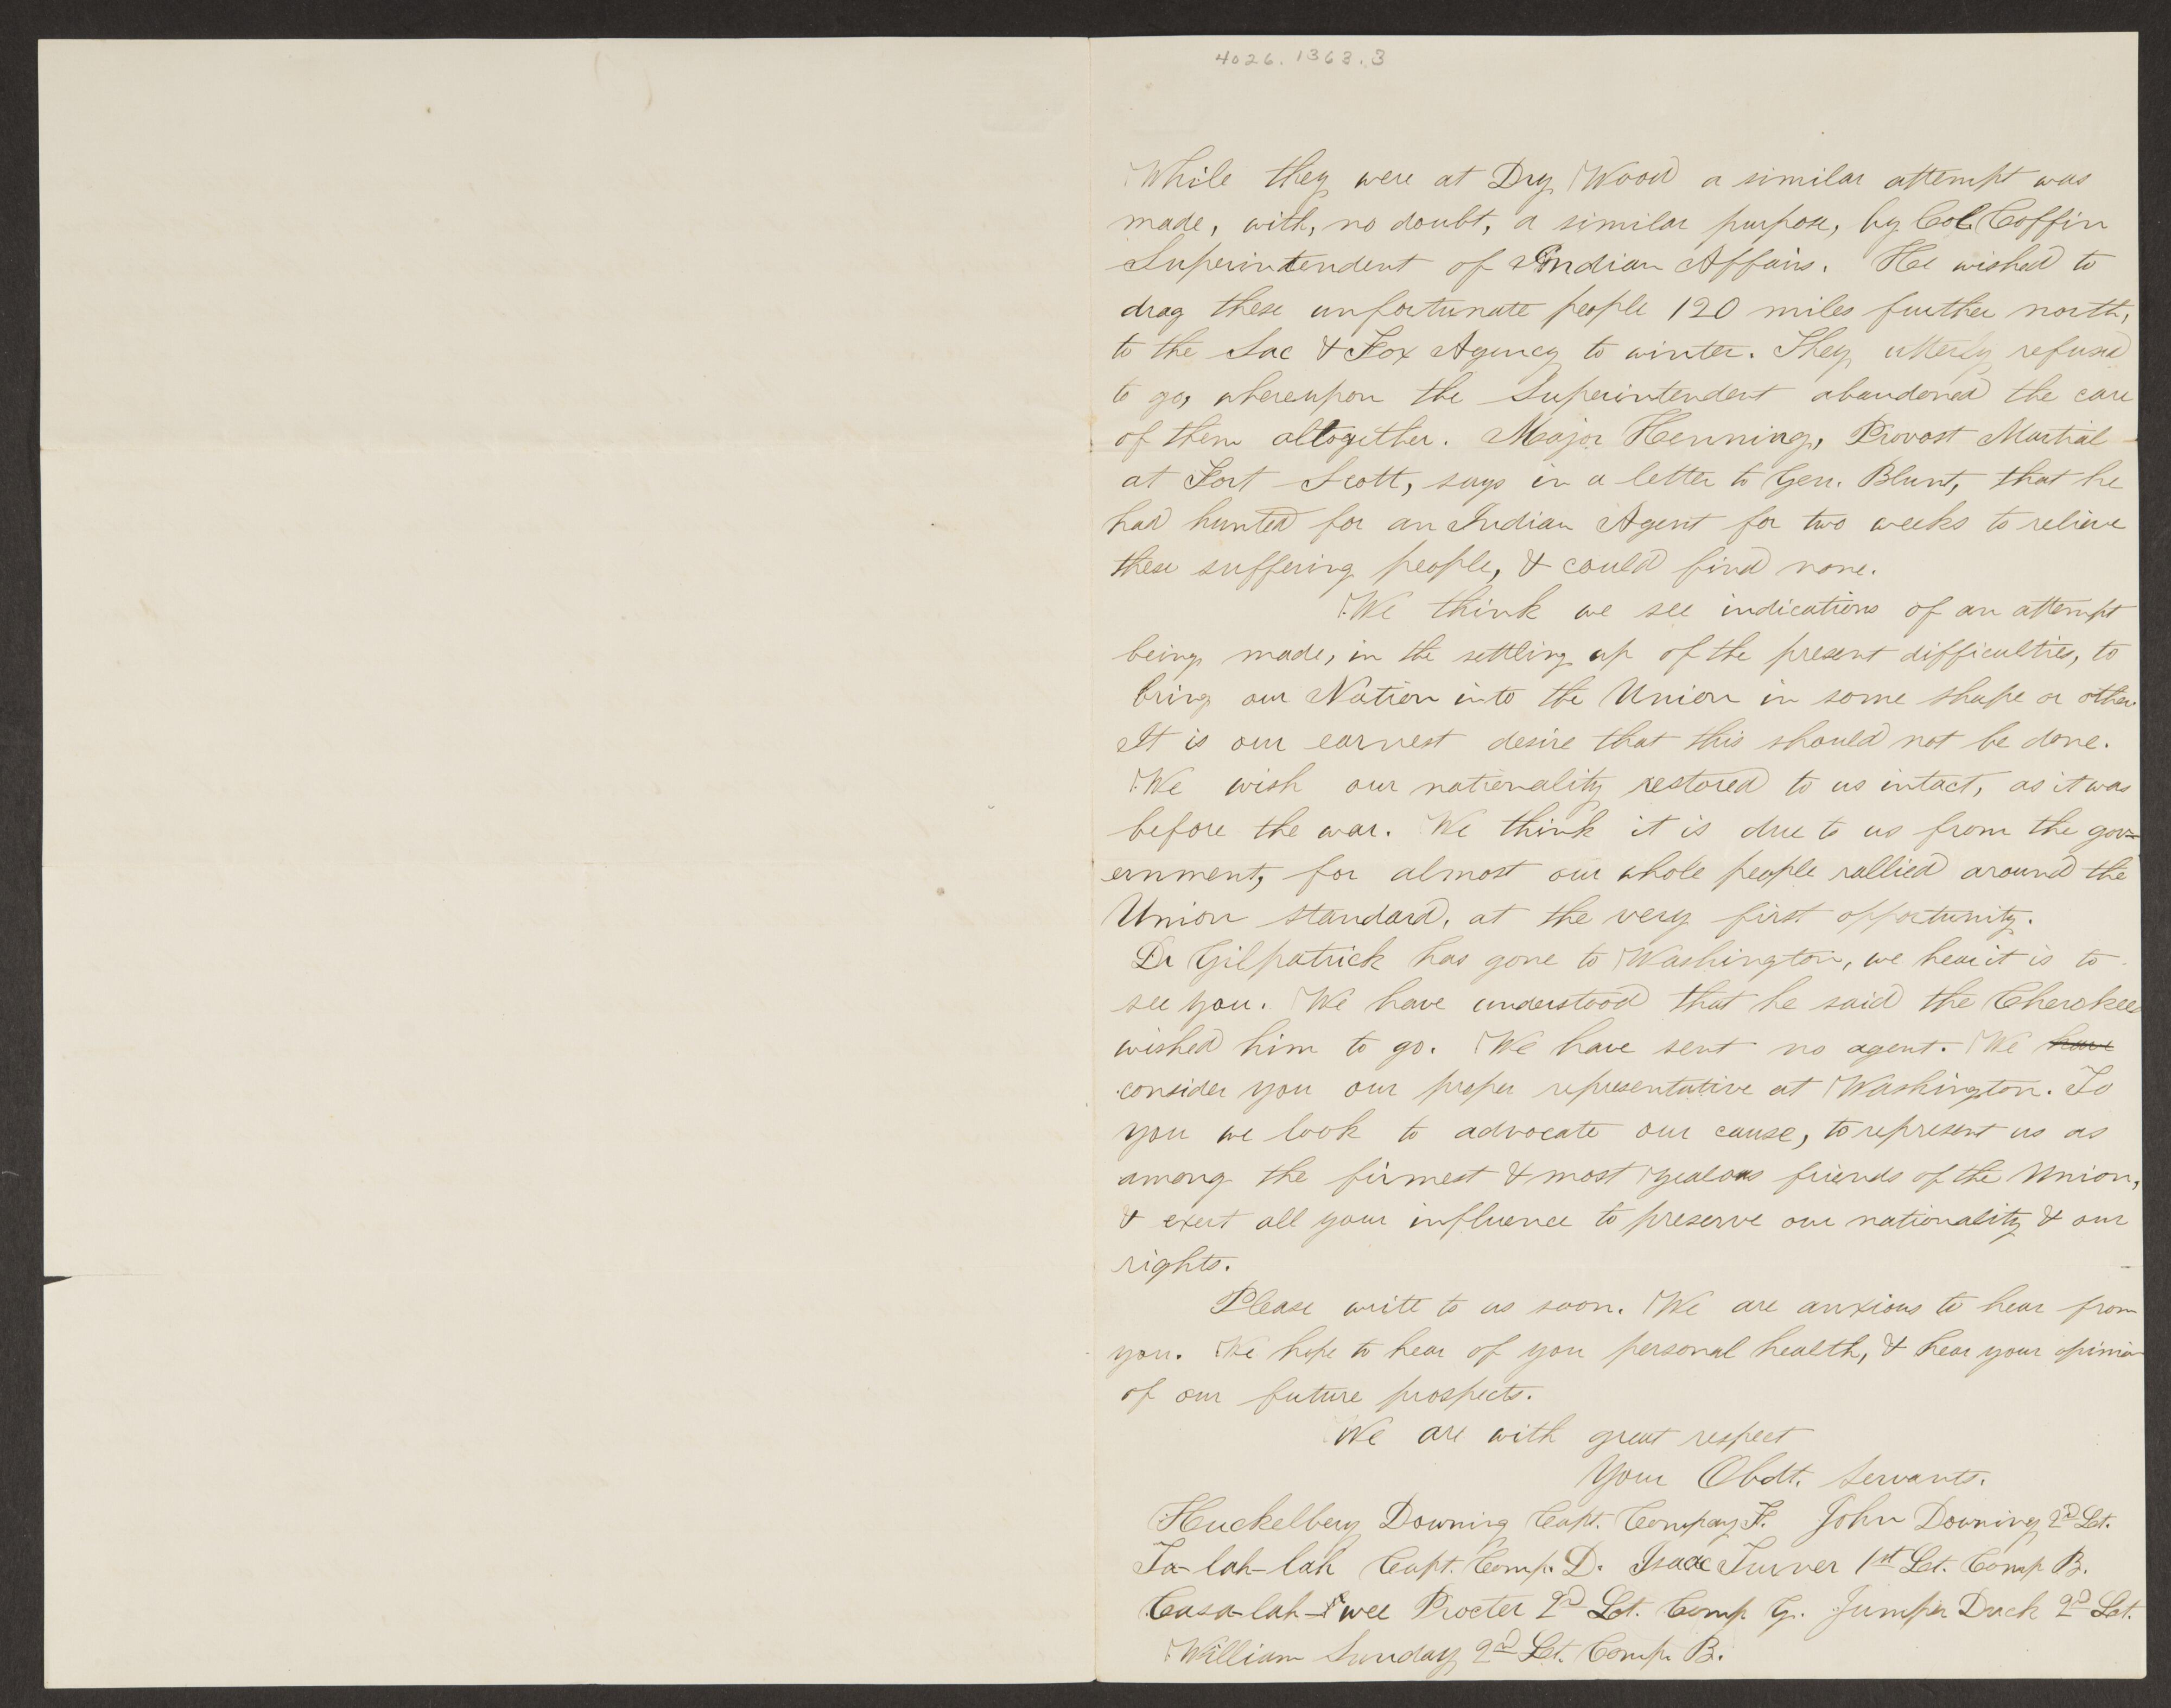 4026.1368.3
While they were at Dry Wood a similar attempt was
made, with, no doubt, a similar purpose, by Col. Coffin
Superintendent of Indian Affairs. He wished to
drag these unfortunate people 120 miles further north,
to the Sac & Fox Agency to winter. They utterly refused
to go, whereupon the Superintendent abandoned the care
of them altogether. Major Henning, Provost Martial
at Fort Scott, says in a letter to Gen. Blunt, that he
had hunted for an Indian Agent for two weeks to relieve
these suffering people, & could find none.
We think we see indications of an attempt
being made, in the settling up of the present difficulties, to
bring our Nation into the Union in some shape or other
It is our earnest desire that this should not be done.
We wish our nationality restored to us intact, as it was
before the war. We think it is due to us from the gov=
ernment, for almost our whole people rallied around the
Union standard, at the very first opportunity.
Dr Gilpatrick has gone to Washington, we hear it is to
see you. We have understood that he said the Cherokees
wished him to go. We have sent no agent. We have
consider you our proper representative at Washington. To
you we look to advocate our cause, to represent us as
among the firmest & most zealous friends of the Union,
& exert all your influence to preserve our nationality & our
rights.
Please write to us soon. We are anxious to hear from
you. We hope to hear of you personal health, & hear your opinion
of our future prospects.
We are with great respect
Your Obdt. Servants.
Huckelbery Downing Capt. Company F. John Downing 2nd Lt.
Ta-lah-lah Capt. Comp. D. Isaac Turner 1st Lt. Comp B.
wee Procter 2nd Lt. Comp G. Jumper Duck 2nd Lt.
William Sunday 2nd Lt. Comp. B.